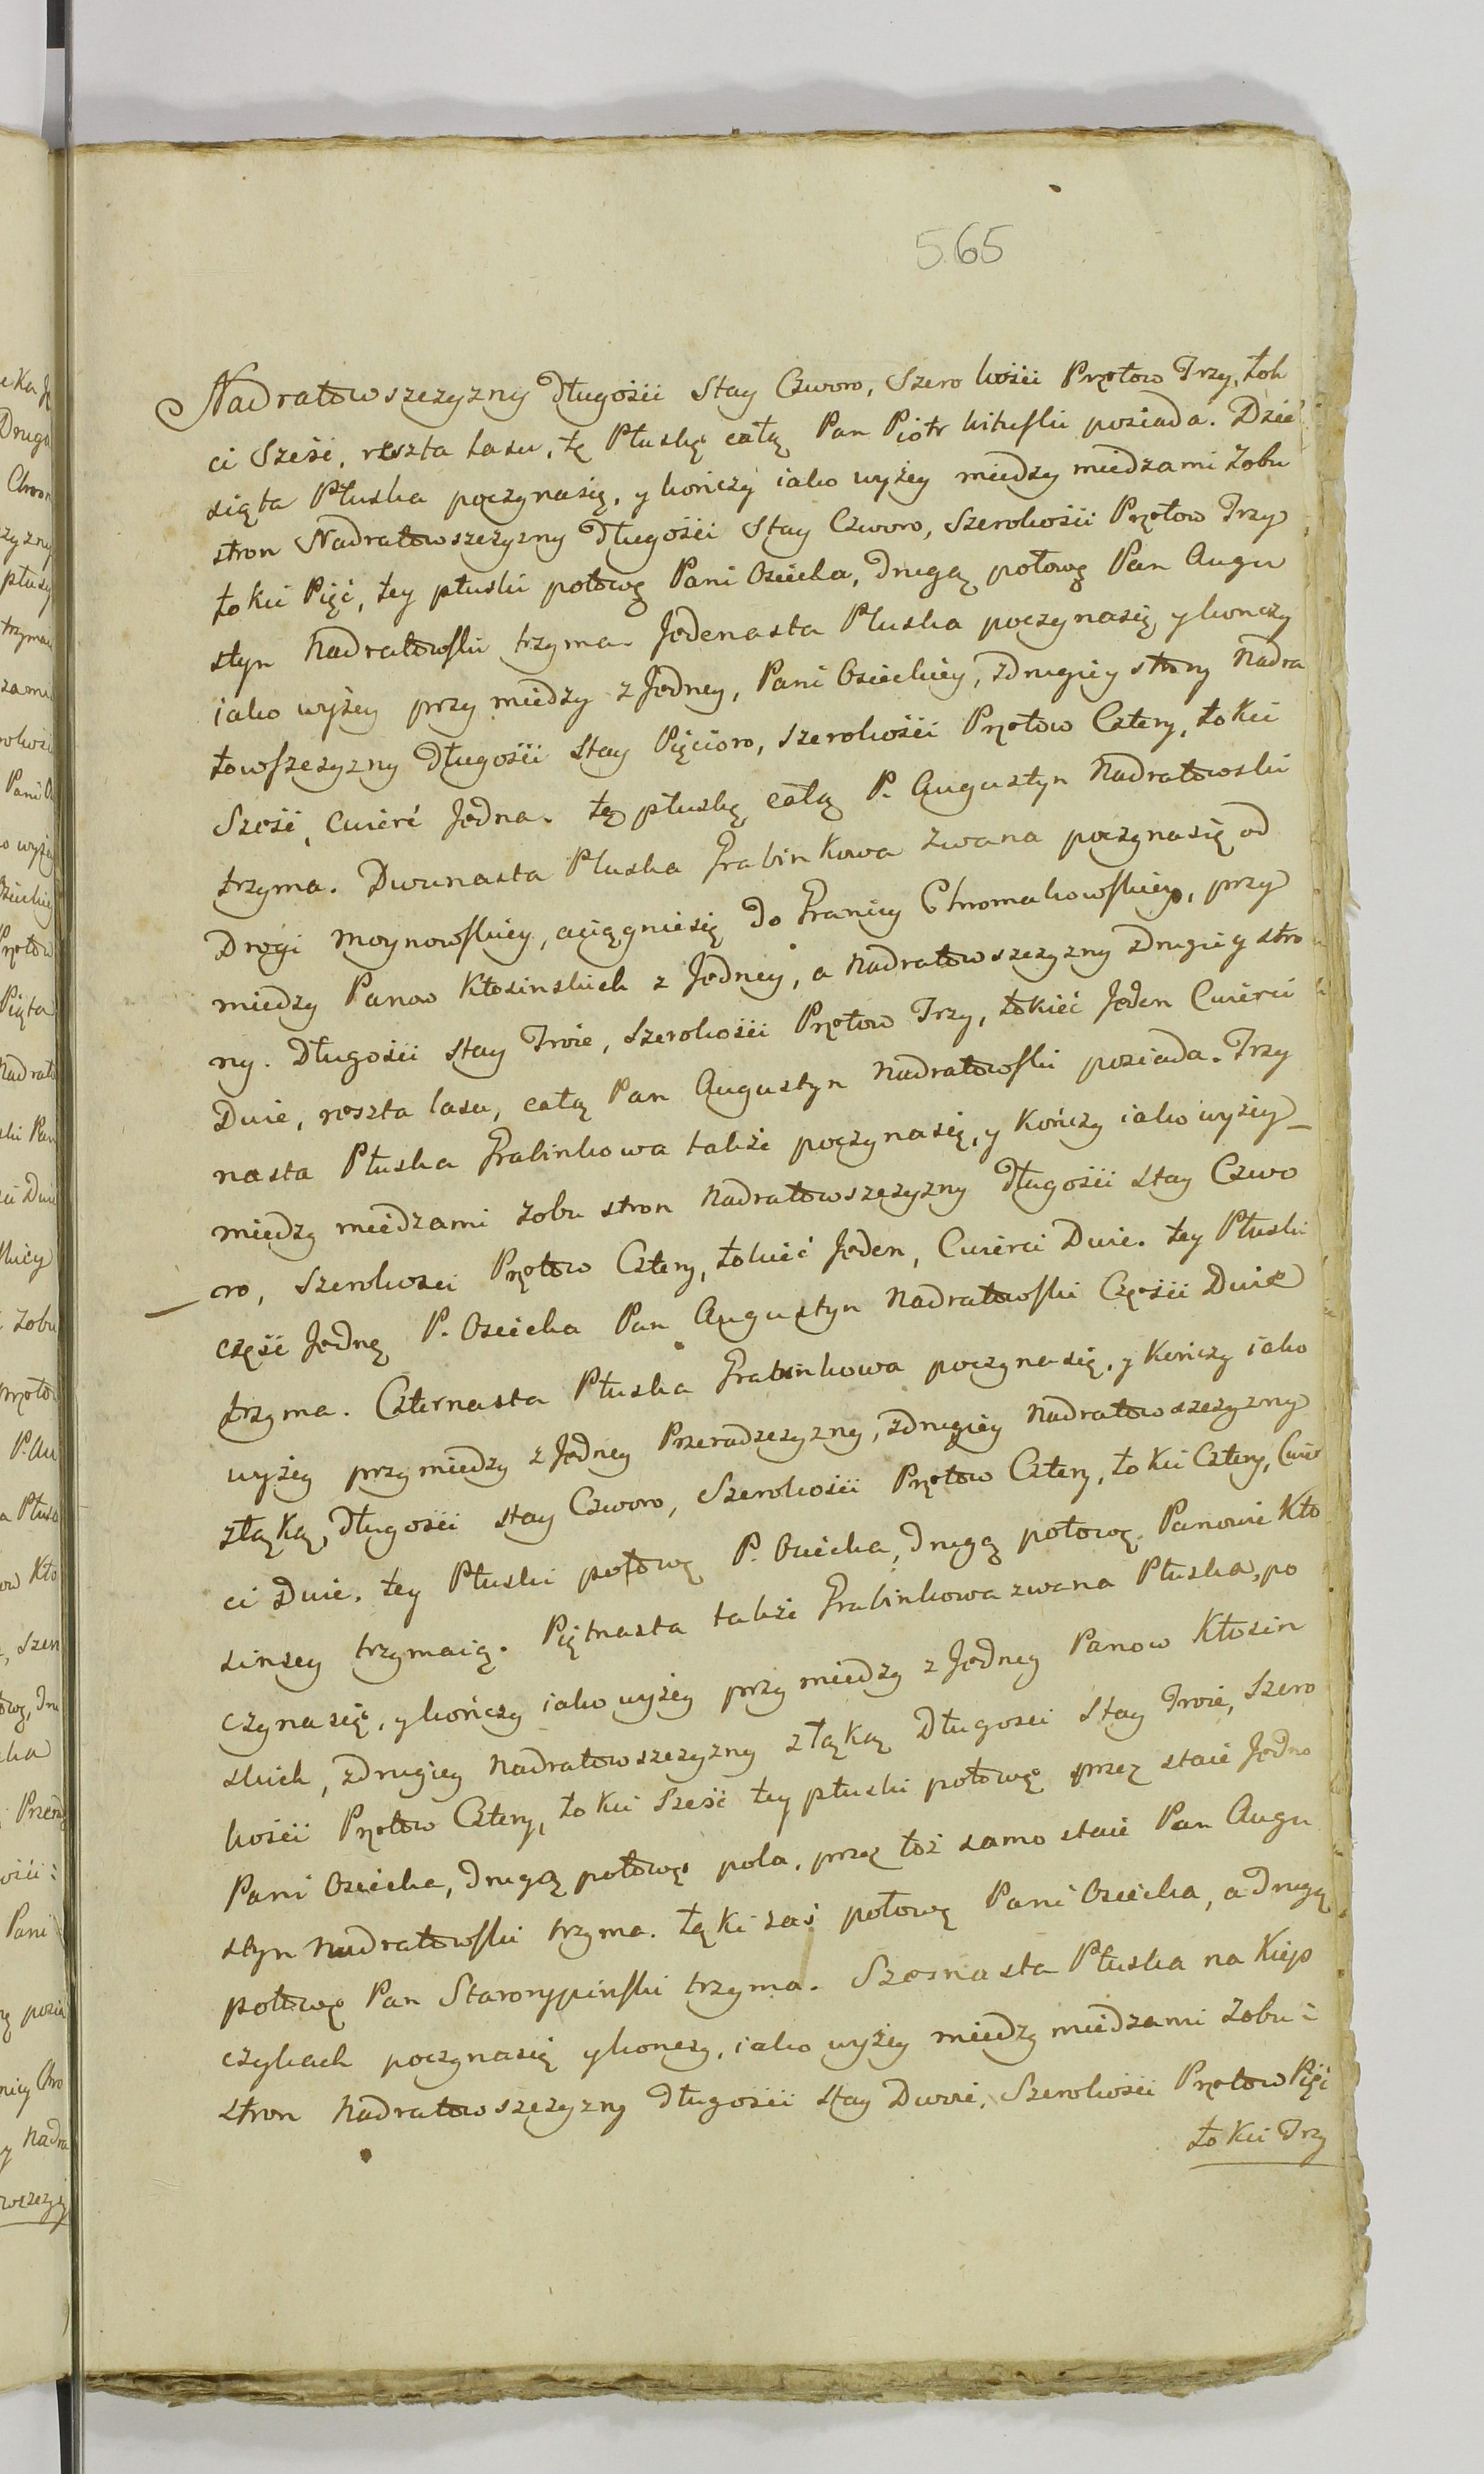 565
Nadratowszczyzny Długośíi Stay Czworo, Szerokośíi Prętow Trzy, Łok
ci Sześć, reszta Lasu, tę Płuskę całą Pan Piotr posiada. Dzie
siąta Płuska poczynasię, y kończy iako wyżey miedzy miedzami Zobu
stron Nadratowszczyzny Długości Stay Czworo, Szerokośíi Prętow Trzy
Łokci Pięć, tey płuski połowę Pani Osiecka, Drugą połowę Pan Augu
styn Nadratowski trzyma. Jedenasta Pluska poczynasię, y konczy
iako wyżey przy miedzy z Jedney, Pani Osieckiey, zdrugiey strony Nadra
towszczyzny Długośíi Stay Pięcioro, Szerokośíi Prętow Cztery, Łokci
Sześć, cwierć Jedna. tę płuskę całą P. Augustyn Nadratowski
trzyma. Dwunasta Pluska Grabinkowa zwana poczynasię od
Drogi Moynowskiey, aciągniesię do Granicy Chromakowskiey, przy
miedzy Panow Kłosinskich z Jedney, a Nadratowszczyzny zDrugiey stro
ny. Długośíi Stay Troie, Szerokośíi Prętow Trzy, Łokieć Jeden Cwierci
Dwie, reszta lasu, całą Pan Augustyn Nadratowski posiada. Trzy
nasta Płuska Grabinkowa także poczynasię, y kończy iako wyżey
miedzy miedzami zobu stron Nadratowszczyzny Długośíi Stay Czwo
ro, Szerokosci Prętow Cztery, Łokieć Jeden, Cwierci Dwie. tey Płuski
część Jednę P. Osiecka Pan Augustyn Nadratowski Częśíi Dwie
trzyma. Czternasta Płuska Grabinkowa poczynasię, y kończy iako
wyżey przymiedzy z Jedney Przeradzczyzny, zdrugiey Nadratowszczyzny
złąką, Długośíi Stay Czworo, Szerokośíi Prętow Cztery, Łokci Cztery, Cwier
ci Dwie. tey Płuski połowę P. Osiecka, Drugą połowę Panowie Kło
sinscy trzymaią. Piętnasta także Grabinkowa zwana Płuska, po
czynasię, y kończy iako wyżey przy miedzy z Jedney Panow Kłosin
skich, zdrugiey Nadratowszczyzny złąką Długosci Stay Troie, Szero
kośíi Prętow Cztery, Łokci Sześć tey płuski połowę przez staie Jedno
Pani Osiecka, Drugą połowę pola, przez toż samo staie Pan Augu
styn Nadratowski trzyma. Łąki zaś połowę Pani Osiecka, a Drugą
połowę Pan Starorypinski trzyma. Szesnasta Płuska na Kiep
czykach poczynasię ykonczy, iako wyżey miedzy miedzami zobu
stron Nadratowszczyzny Długośíi Stay Dwoie, Szerokośíi Prętow Pięć
Łokci Trzy